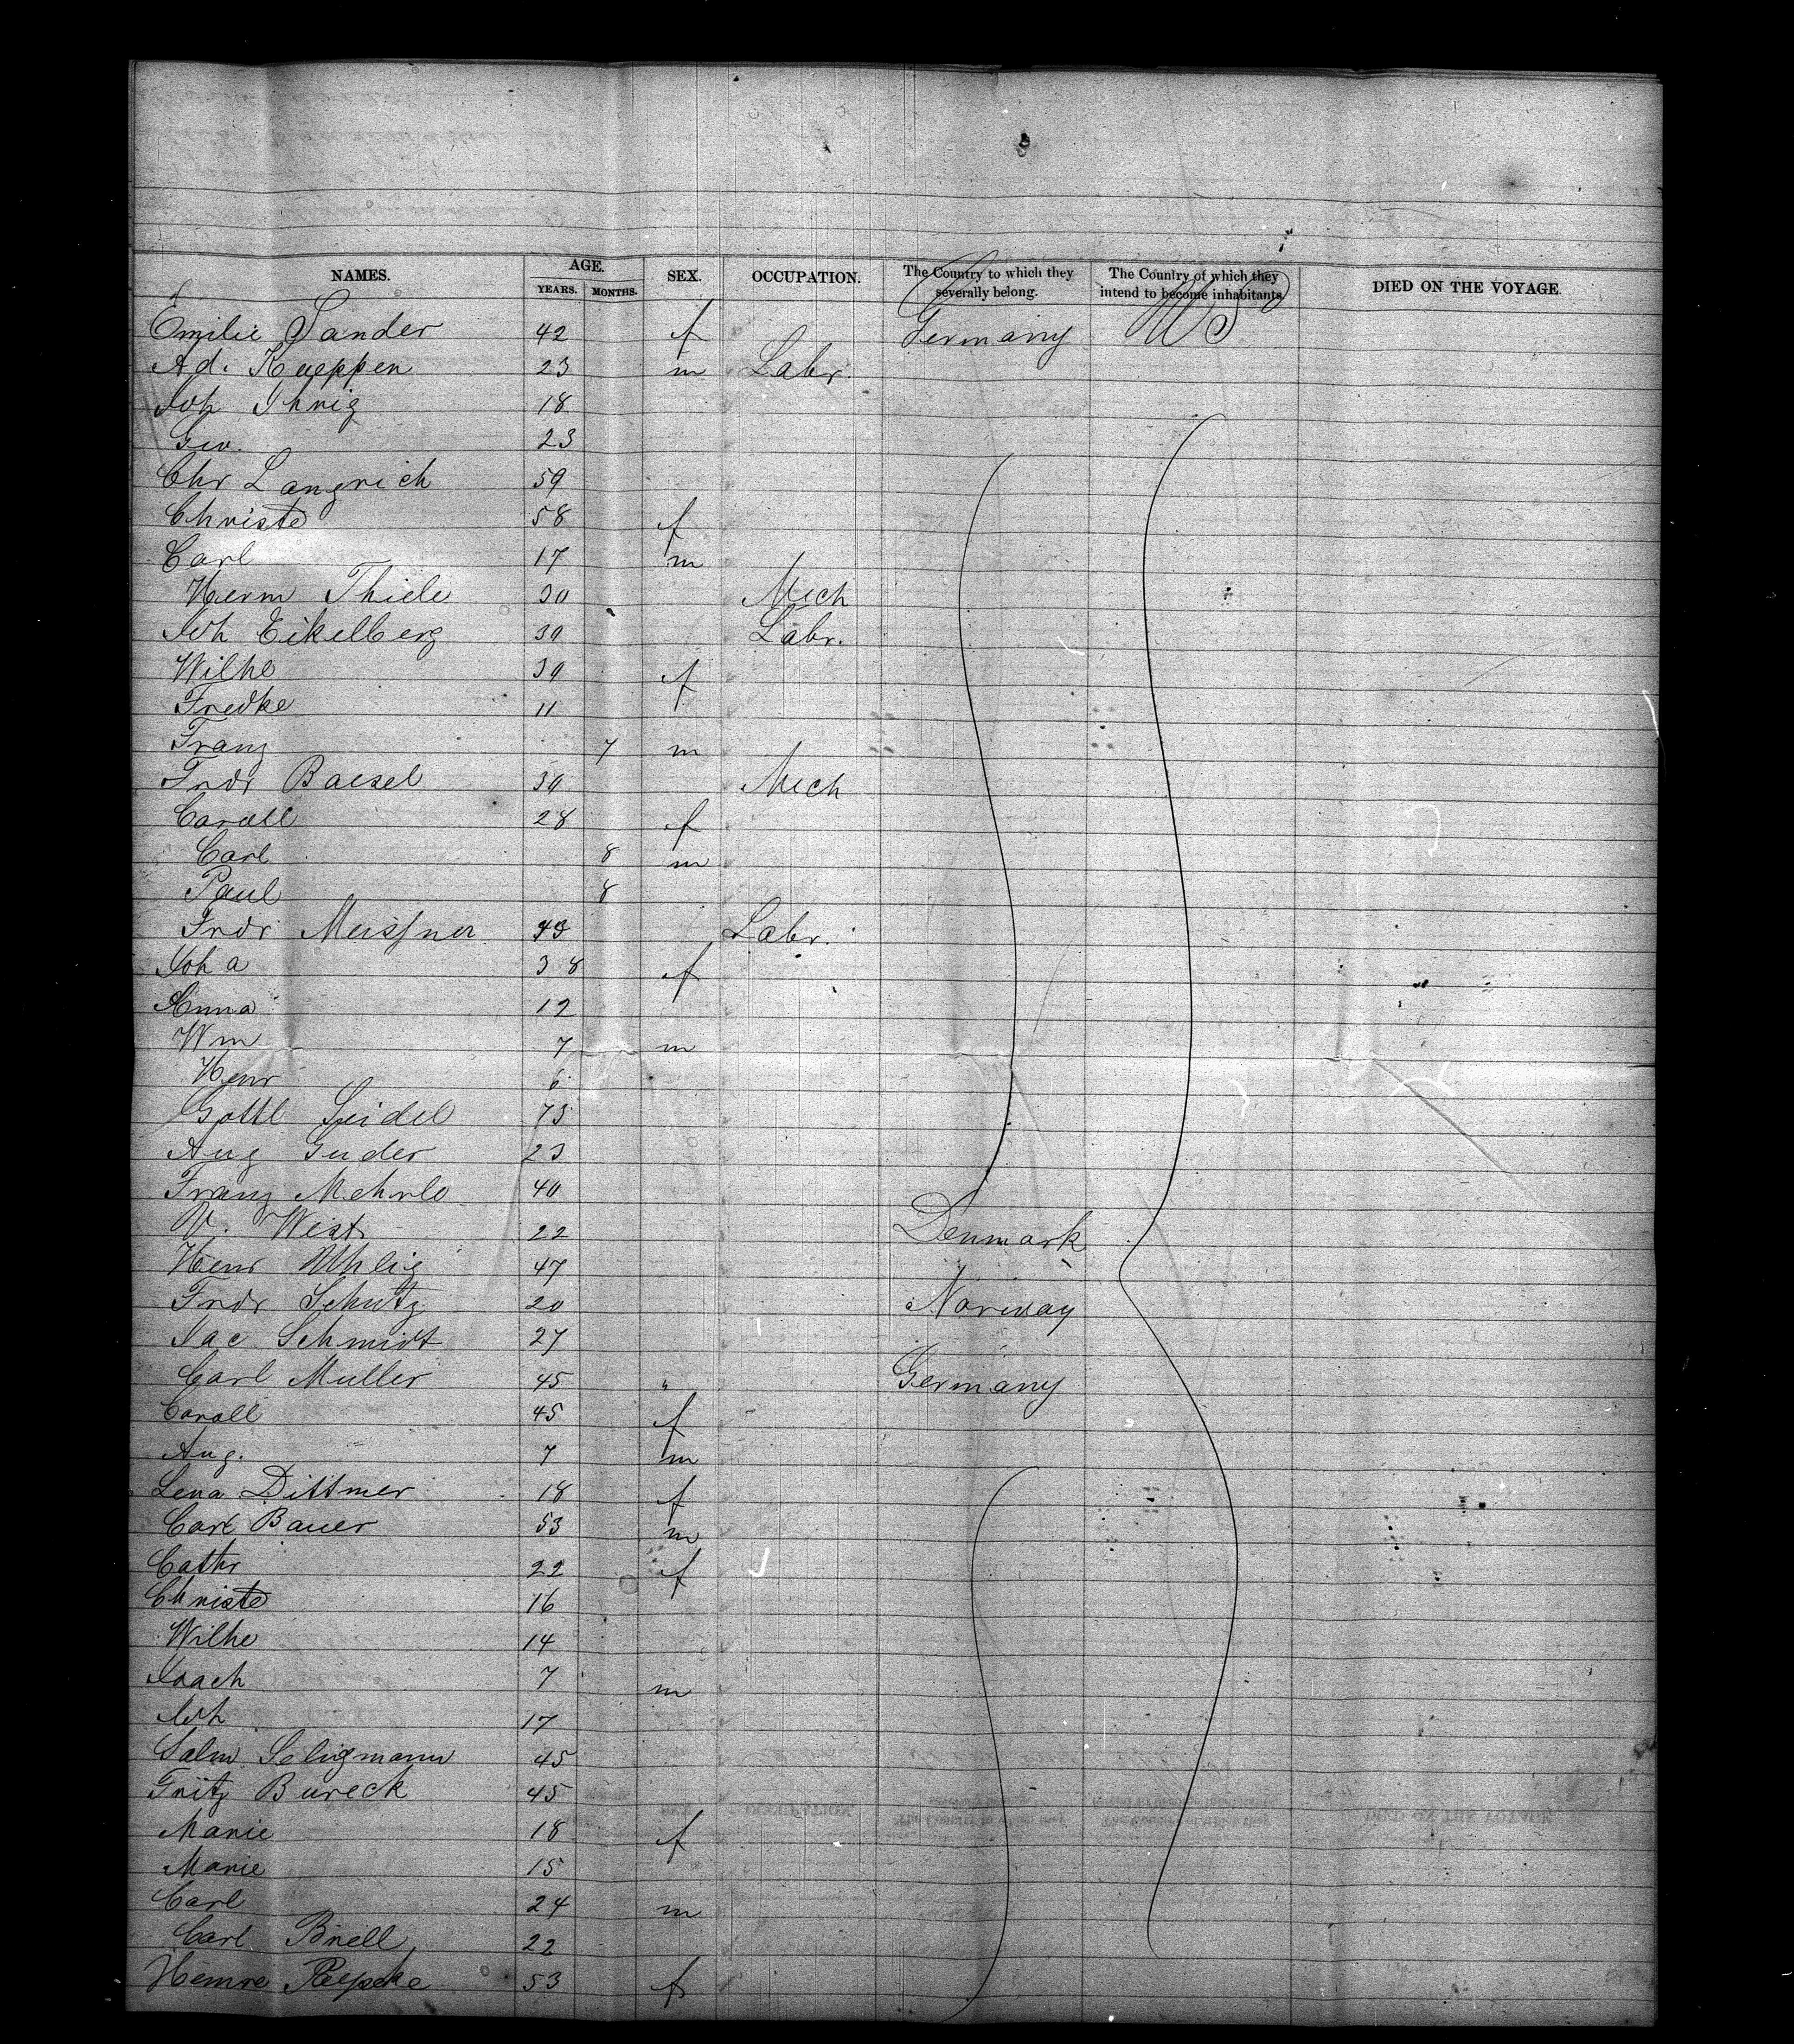 NAMES. AGE. SEX. OCCUPATION. The Country to which they severally belong. The Country of which they intend to become inhabitants. DIED ON THE VOYAGE.
YEARS. MONTHS.
Emilie Sander 42 f Germany US
Ad. Kueppen 23 m Labr.
Joh Ihrig 18
Geo. 23
Chr Langrich 59
Christe 58 f
Carl 17 m
Herm Thiele 30 Mech
Joh Eikelberg 30 Labr.
Wilhe 30 f
Fredke 11
Franz 7 m
Fridr Baesel 30 Mech
Caroll 28 f
Carl 8 m
Paul 8
Fridr Meissner 43 Labr.
Joh a 38 f
Anna 12
Wm 7 m
Henr 6
Gottl Seidel 73
Aug Guder 23
Franz Mehrle 40
N. West 22 Denmark
Henr Uhlig 47
Fridr Schutz 20 Norway
Jac Schmidt 27
Carl Muller 45 " Germany
Caroll 45 f
Aug. 7 m
Lena Dittmer 18 f
Carl Bauer 53 m
Cathr 22 f
Christe 16
Wilhe 14
Joach 7 m
Joh 17
Salm Seligmann 45
Fritz Bureck 45
Marie 18 f
Marie 15
Carl 24 m
Carl Briell 22
Henre Paepcke 53 f